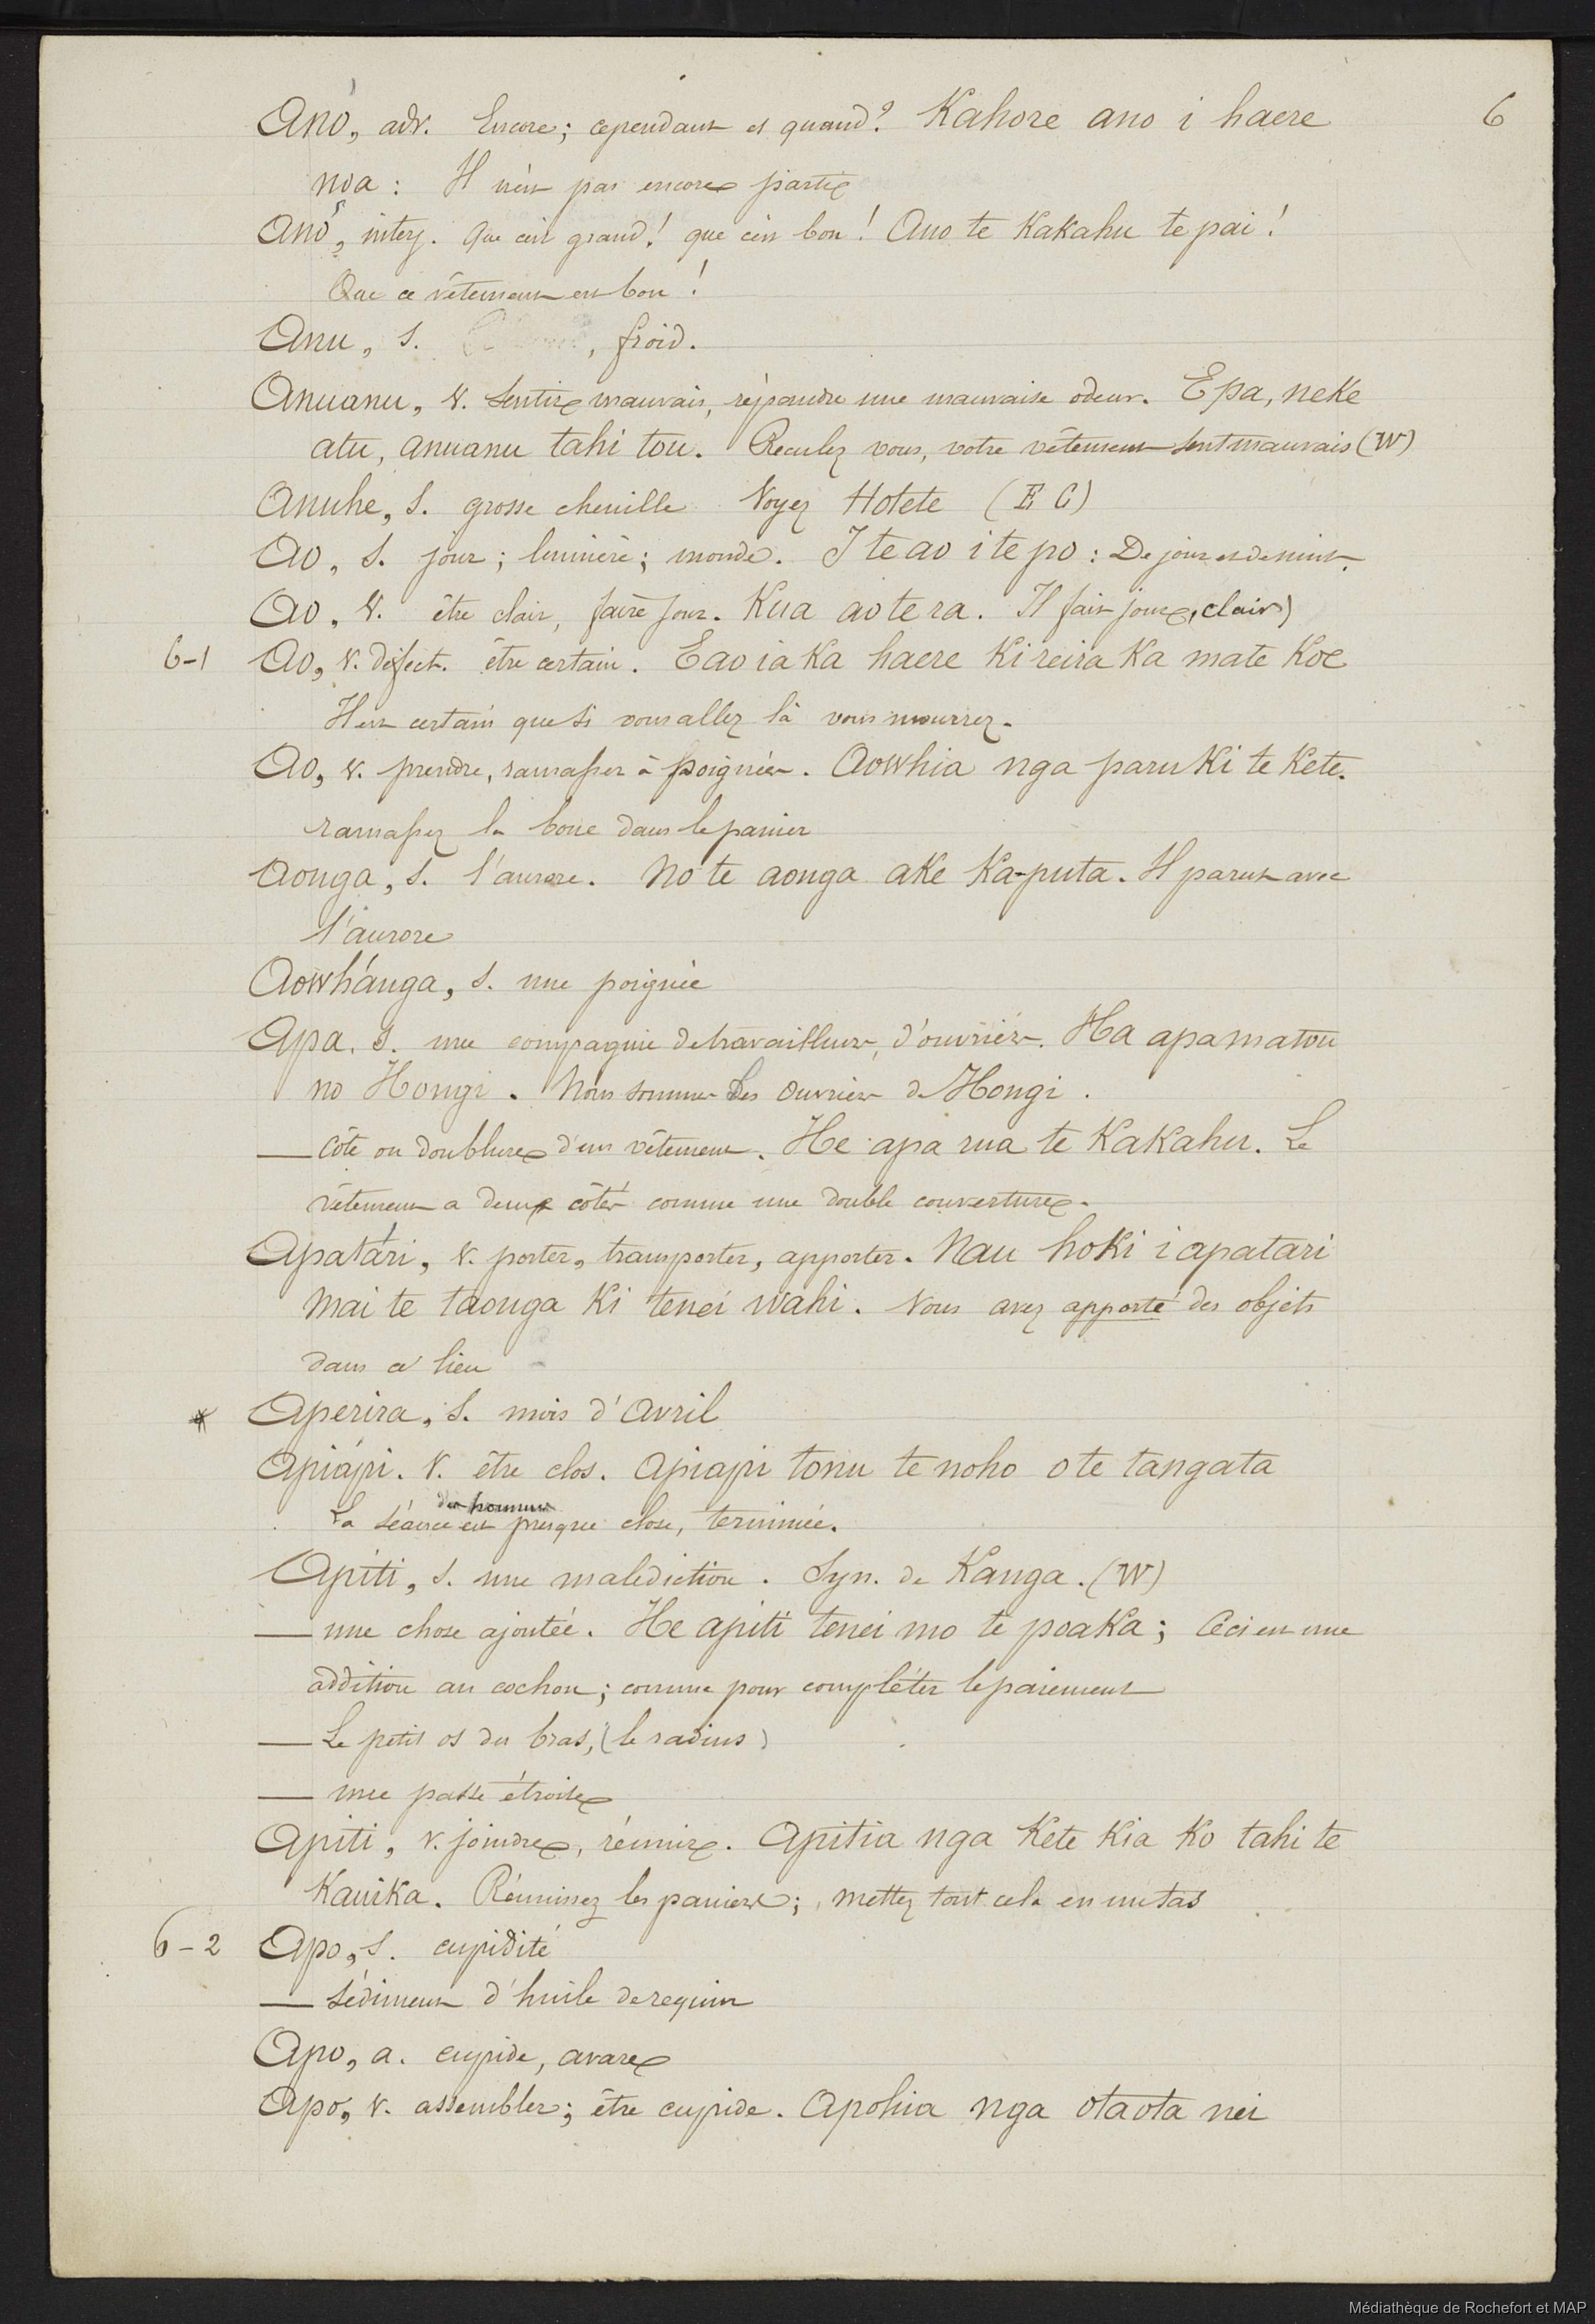 6
Anó, adv. Encore; cependant et quand? Kahore ano i haere
noa : Il n'est pas encore parti
Anó, interj. Que c'est grand! que c'est bon! Ano te Kakahu te pai!
Que ce vêtement est bon!
Anu, s. , froid.
Anuanu, v. Sentir mauvais, répandre une mauvaise odeur. E pa, neke
atu, anuanu tahi tou. Reculez vous, votre vêtement sent mauvais (W)
Anuhe, s. grosse chenille Voyez Hotete (E C)
Ao, s. jour; lumière; monde. I te ao i te po : De jour et de nuit.
Ao, v. être clair, faire jour. Kua ao te ra. Il fait jour, clair)
6-1 Ao, v. défect. être certain. E ao ia Ka haere Ki reira Ka mate Koe
Il est certain que si vous allez là vous mourrez.
Ao, v. prendre, ramasser à poignées. Aowhia nga paru Ki te Kete.
ramassez la boue dans le panier
Aonga, s. l'aurore. No te aonga ake Ka-puta. Il parut avec
l'aurore
Aowhánga, s. une poignée
Apa, s. une compagnie de travailleurs, d'ouvriers. Ha apa matou
no Hongi. Nous sommes les ouvriers de Hongi.
— Côté ou doublure d'un vêtement. He apa rua te Kakahu. Le
vêtement a deux côtés comme une double couverture.
Apatári, v. porter, transporter, apporter. Nau hoki i apatari
mai te taonga Ki tenei wahi. Vous avez apporté des objets
dans ce lieu
* Aperira, s. mois d'Avril
Apiápi. v. être clos. Apiapi tonu te noho o te tangata
des hommes
La séance est presque close, terminée.
Apiti, s. une malediction. Syn. de Kanga. (W)
— une chose ajoutée. He apiti tenei mo te poaka; Ceci est une
addition au cochon; comme pour compléter le paiement
— Le petit os du bras, (le radius)
— une passe étroite
Apiti, v. joindre, réunir. Apitia nga Kete Kia Ko tahi te
Kauika. Réunissez les paniers; mettez tout cela en un tas
6-2 Apo, s. cupidité
— Sédiment d'huile de requin
Apo, a. cupide, avare
Apo, v. assembler; être cupide. Apohia nga otaota nei
Médiathèque de Rochefort et MAP